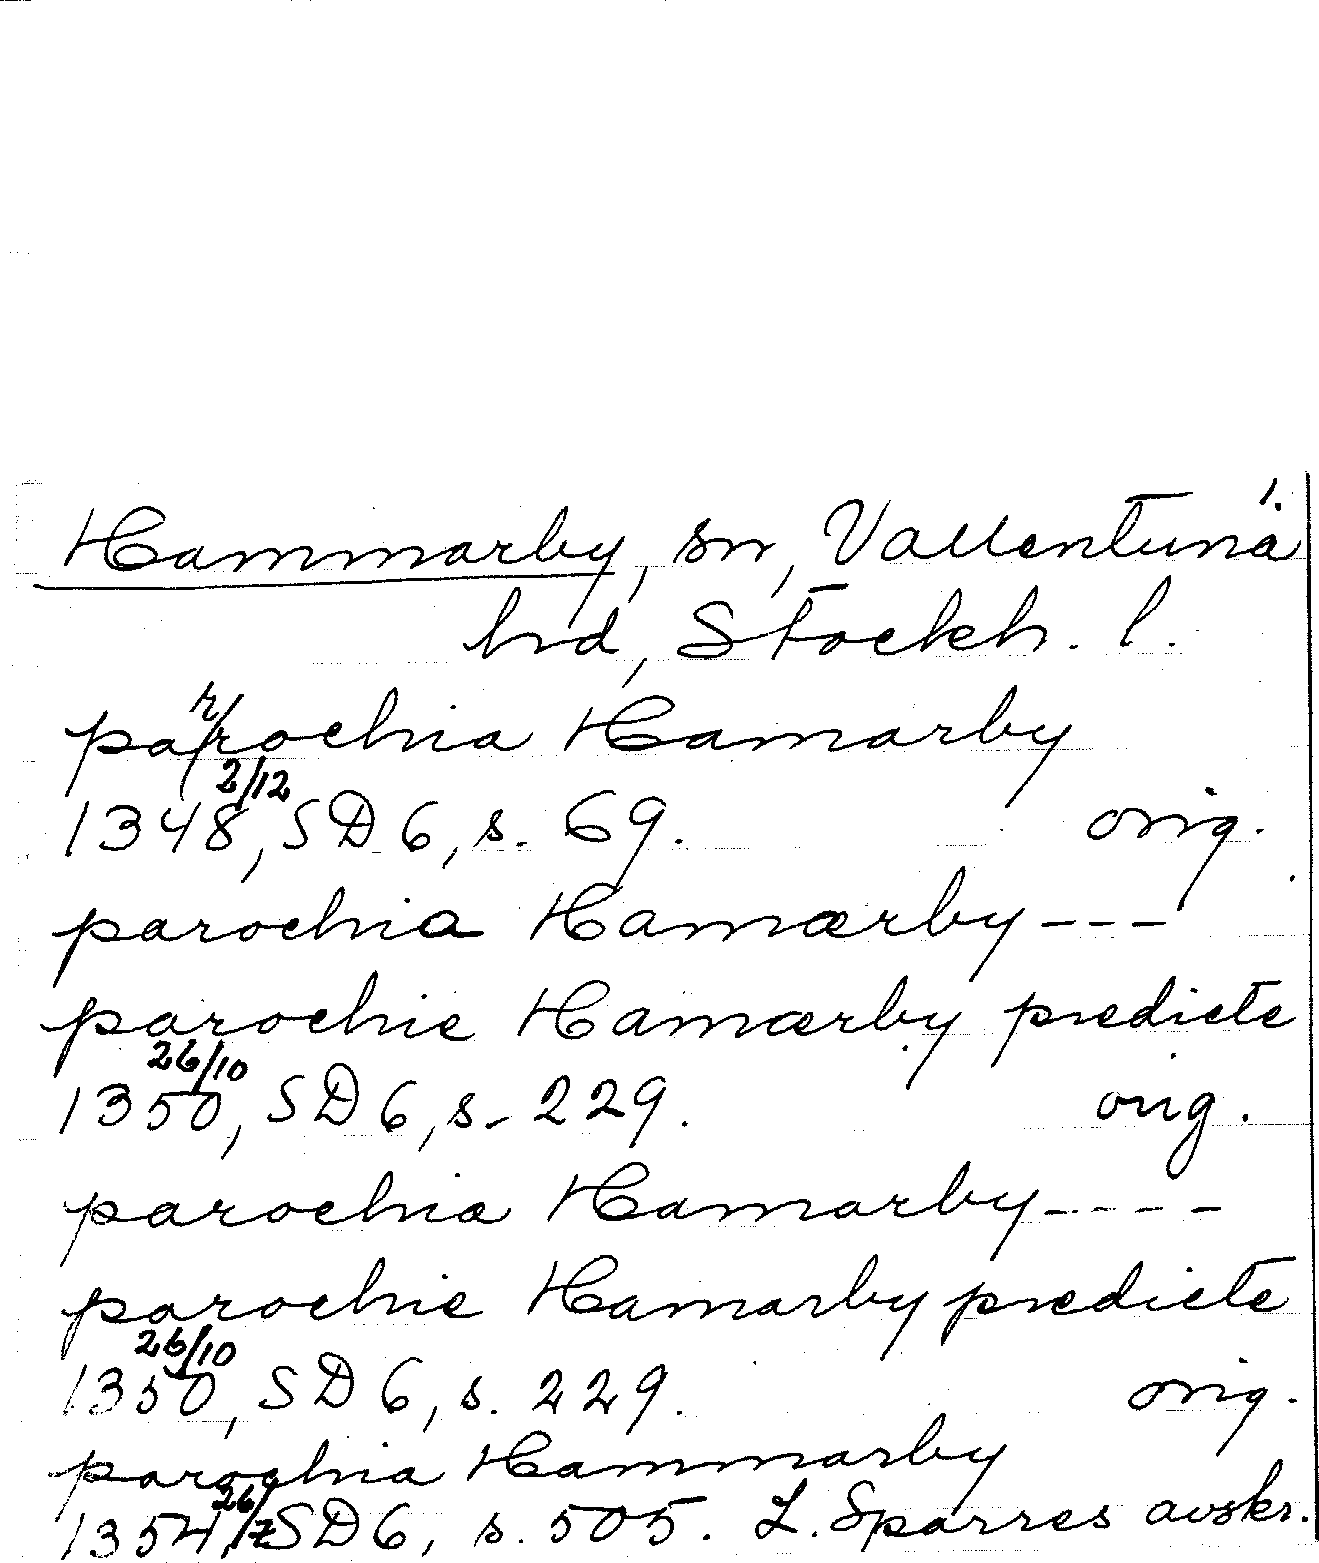 1.
Hammarby, sn, Vallentuna
hd, Stockh. l.
parochia Hamarby
1348 2/12, SD 6, s. 69. orig.
parochia Hamærby ---
parochie Hamærby predicte
1350 26/10, SD 6, s. 229. orig.
parochia Hamarby ----
parochie Hamarby predicte
1350 26/10, SD 6, s. 229. orig.
parochia Hammarby
1354 26/7, SD 6, s. 505. L. Sparres avskr.